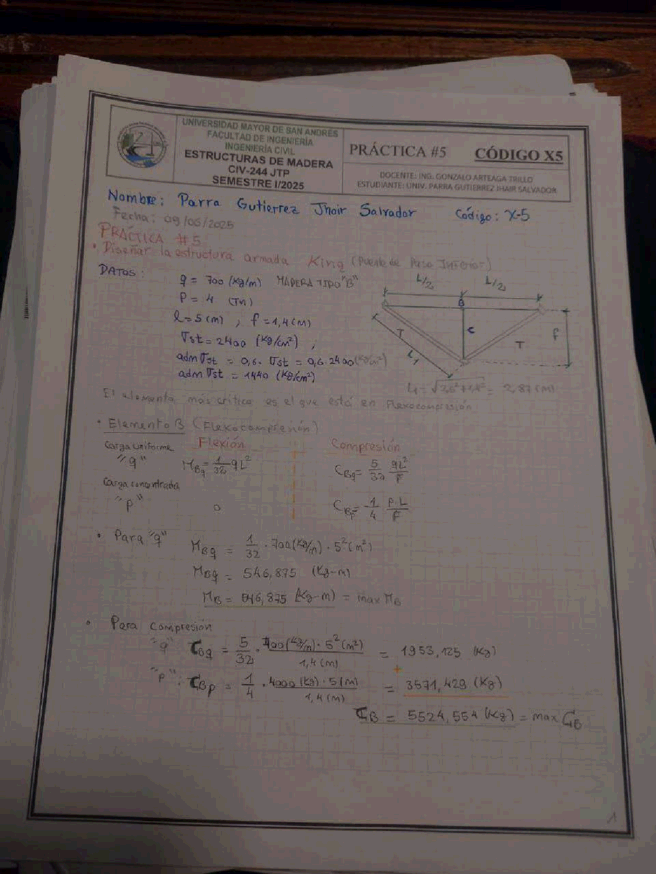 UNIVERSIDAD MAYOR DE SAN ANDRÉS
FACULTAD DE INGENIERÍA
INGENIERÍA CIVIL
ESTRUCTURAS DE MADERA
CIV-244 JTP
SEMESTRE I/2025
PRÁCTICA #5 CÓDIGO X5
DOCENTE: ING. GONZALO ARTEAGA TRILLO
ESTUDIANTE: UNIV. PARRA GUTIERREZ JHAIR SALVADOR
Nombre: Parra Gutierrez Jhair Salvador Código: X-5
Fecha: 09/06/2025
PRÁCTICA #5
• Diseñar la estructura armada King (Puente de Paso Inferior)
DATOS:
q = 700 (kg/m) MADERA TIPO "B"
P = 4 (Tn)
l = 5 (m) , f = 1,4 (m)
σst = 2400 (kg/cm²) ,
adm σst = 0,6 · σst = 0,6 · 2400 (kg/cm²)
adm σst = 1440 (kg/cm²)
L/2 L/2
B
C
T T
f
L1
= 2,87 (m)
El elemento más crítico es el que está en flexocompresión
• Elemento B (Flexocompresión)
Carga uniforme Flexión Compresión
"q" MBq = 1/32 qL² CBq = 5/32 qL²/f
Carga concentrada
"P" 0 CBp = 1/4 P·L/f
• Para "q" MBq = 1/32 · 700 (kg/m) · 5² (m²)
MBq = 546,875 (kg-m)
MB = 546,875 (kg-m) = max MB
• Para compresión
"q" CBq = 5/32 · 700 (kg/m) · 5² (m²) / 1,4 (m) = 1953,125 (kg)
+
"p" CBp = 1/4 · 4000 (kg) · 5 (m) / 1,4 (m) = 3571,429 (kg)
CB = 5524,554 (kg) = max CB
1